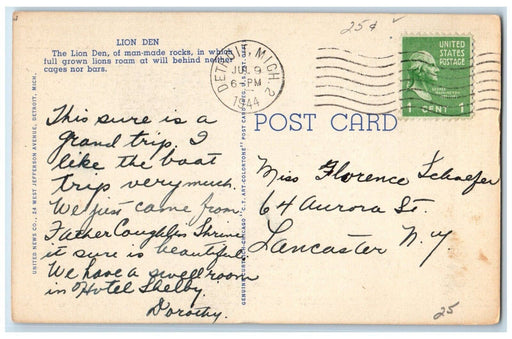 25¢
LION DEN
The Lion Den, of man-made rocks, in which
full grown lions roam at will behind neither
cages nor bars.
DETROIT, MICH. 2
JUL 9
6-PM
1944
UNITED
STATES
POSTAGE
1 CENT 1
POST CARD
This sure is a
grand trip. I
like the boat
trip very much.
We just came from
Father Coughlins Shrine
it sure is beautiful.
We have a swell room
in Hotel Shelby.
Dorothy.
Miss Florence Schaefer
64 Aurora St.
Lancaster N.Y
UNITED NEWS CO., 24 WEST JEFFERSON AVENUE, DETROIT, MICH.
25